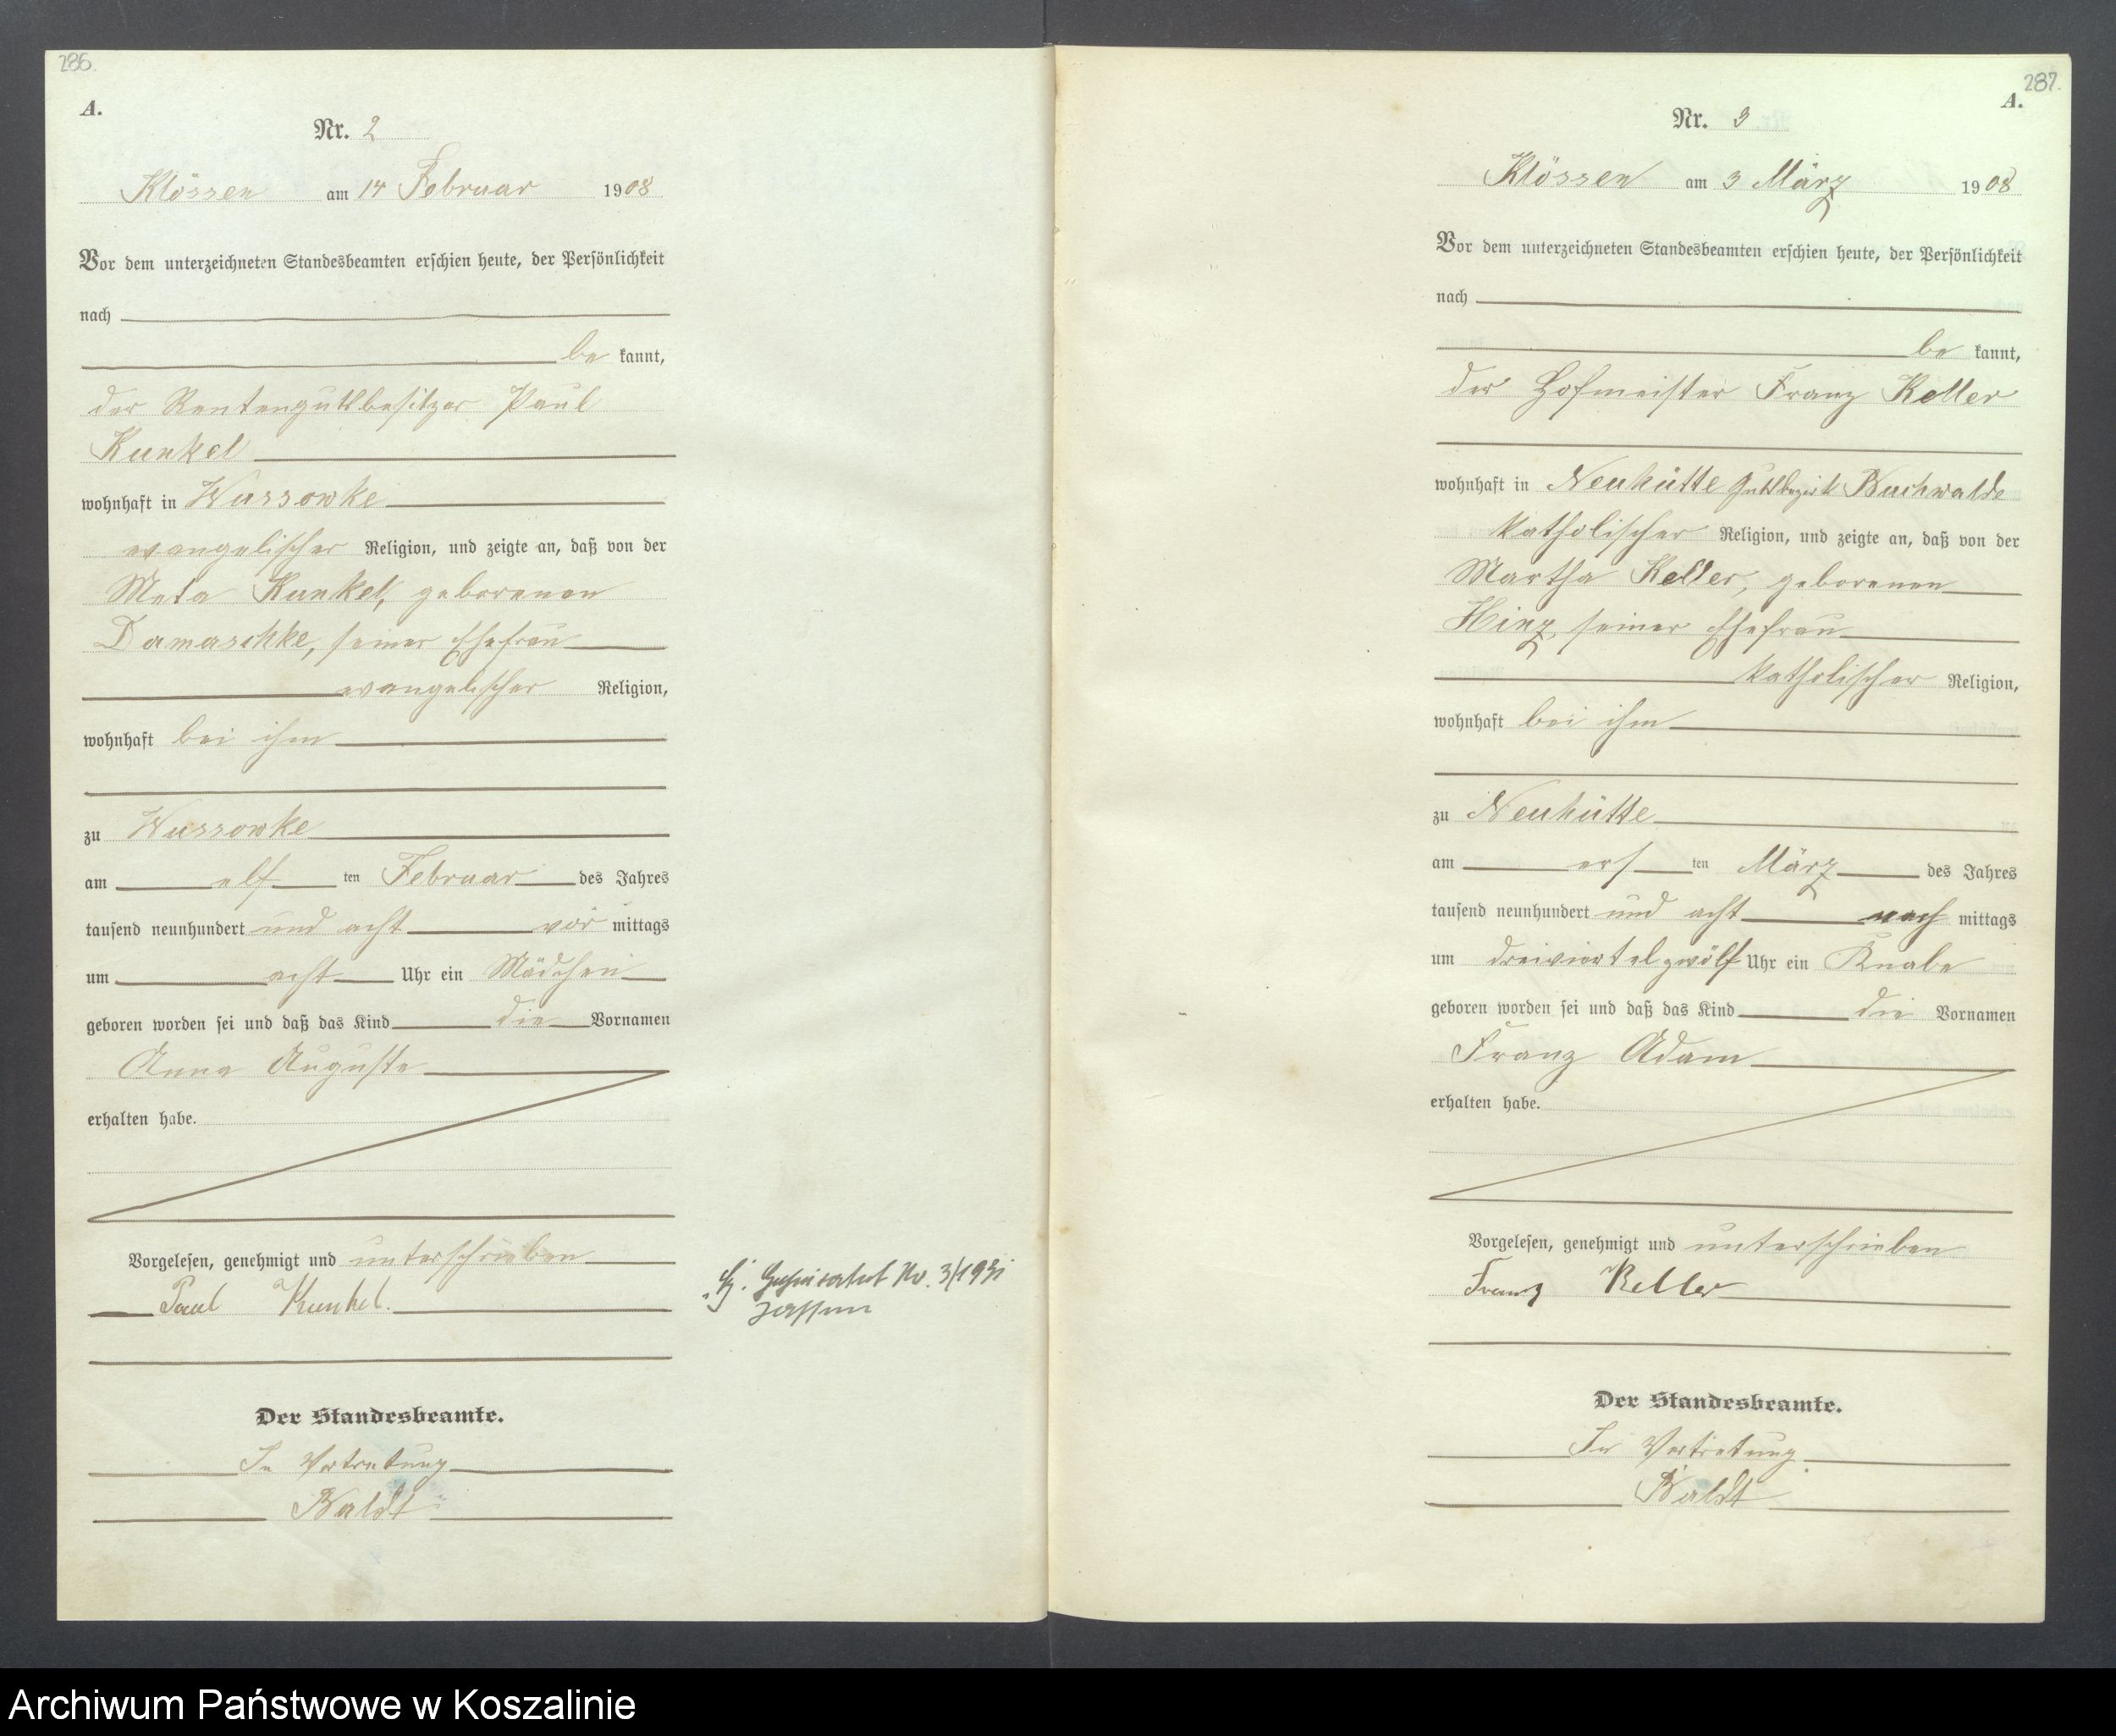 286.
A.
Nr. 2
Klössen am 14 Februar 1908
Vor dem unterzeichneten Standesbeamten erschien heute, der Persönlichkeit
nach
be kannt,
der Rentengutsbesitzer Paul
Kunkel
wohnhaft in Wussowke
evangelischer Religion, und zeigte an, daß von der
Meta Kunkel, geborenen
Damaschke, seiner Ehefrau
evangelischer Religion,
wohnhaft bei ihm
zu Wussowke
am elf ten Februar des Jahres
tausend neunhundert und acht vor mittags
um acht Uhr ein Mädchen
geboren worden sei und daß das Kind die Vornamen
Anna Auguste
erhalten habe.
Vorgelesen, genehmigt und unterschrieben
Paul Kunkel.
Der Standesbeamte.
In Vertretung
Baldt
No. 3/1931
Jassen
287.
A.
Nr. 3
Klössen am 3 März 1908
Vor dem unterzeichneten Standesbeamten erschien heute, der Persönlichkeit
nach
be kannt,
der Hofmeister Franz Keller
wohnhaft in Neuhütte Gutsbezirk Buchwalde
katholischer Religion, und zeigte an, daß von der
Martha Keller, geborenen
Hinz, seiner Ehefrau
katholischer Religion,
wohnhaft bei ihm
zu Neuhütte
am ers ten März des Jahres
tausend neunhundert und acht nach mittags
um dreiviertelzwölf Uhr ein Knabe
geboren worden sei und daß das Kind die Vornamen
Franz Adam
erhalten habe.
Vorgelesen, genehmigt und unterschrieben
Franz Keller
Der Standesbeamte.
In Vertretung
Baldt
Archiwum Państwowe w Koszalinie